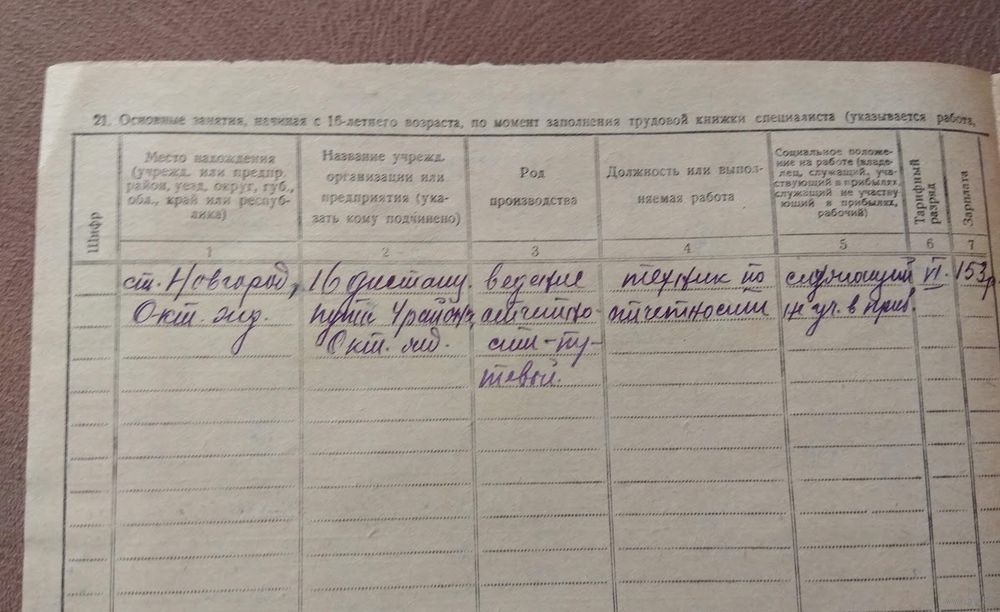 21. Основные занятия, начиная с 16-летнего возраста, по момент заполнения трудовой книжки специалиста (указывается работа,
Шифр
Место нахождения
(учрежд. или предпр.
район, уезд, округ, губ.,
обл., край или респуб-
лика)
Название учрежд.
организации или
предприятия (ука-
зать кому подчинено)
Род
производства
Должность или выпол-
няемая работа
Социальное положе-
ние на работе (владе-
лец, служащий, уча-
ствующий в прибылях,
служащий не участву-
ющий в прибылях,
рабочий)
Тарифный
разряд
Зарплата
1 2 3 4 5 6 7
ст. Новгород,
Окт. жд.
16 дистанц.
пути 4 района,
Окт. жд.
ведение
отчетно-
сти-пу-
тевой.
техник по
отчетности
служащий
не уч. в приб.
VI.
153р